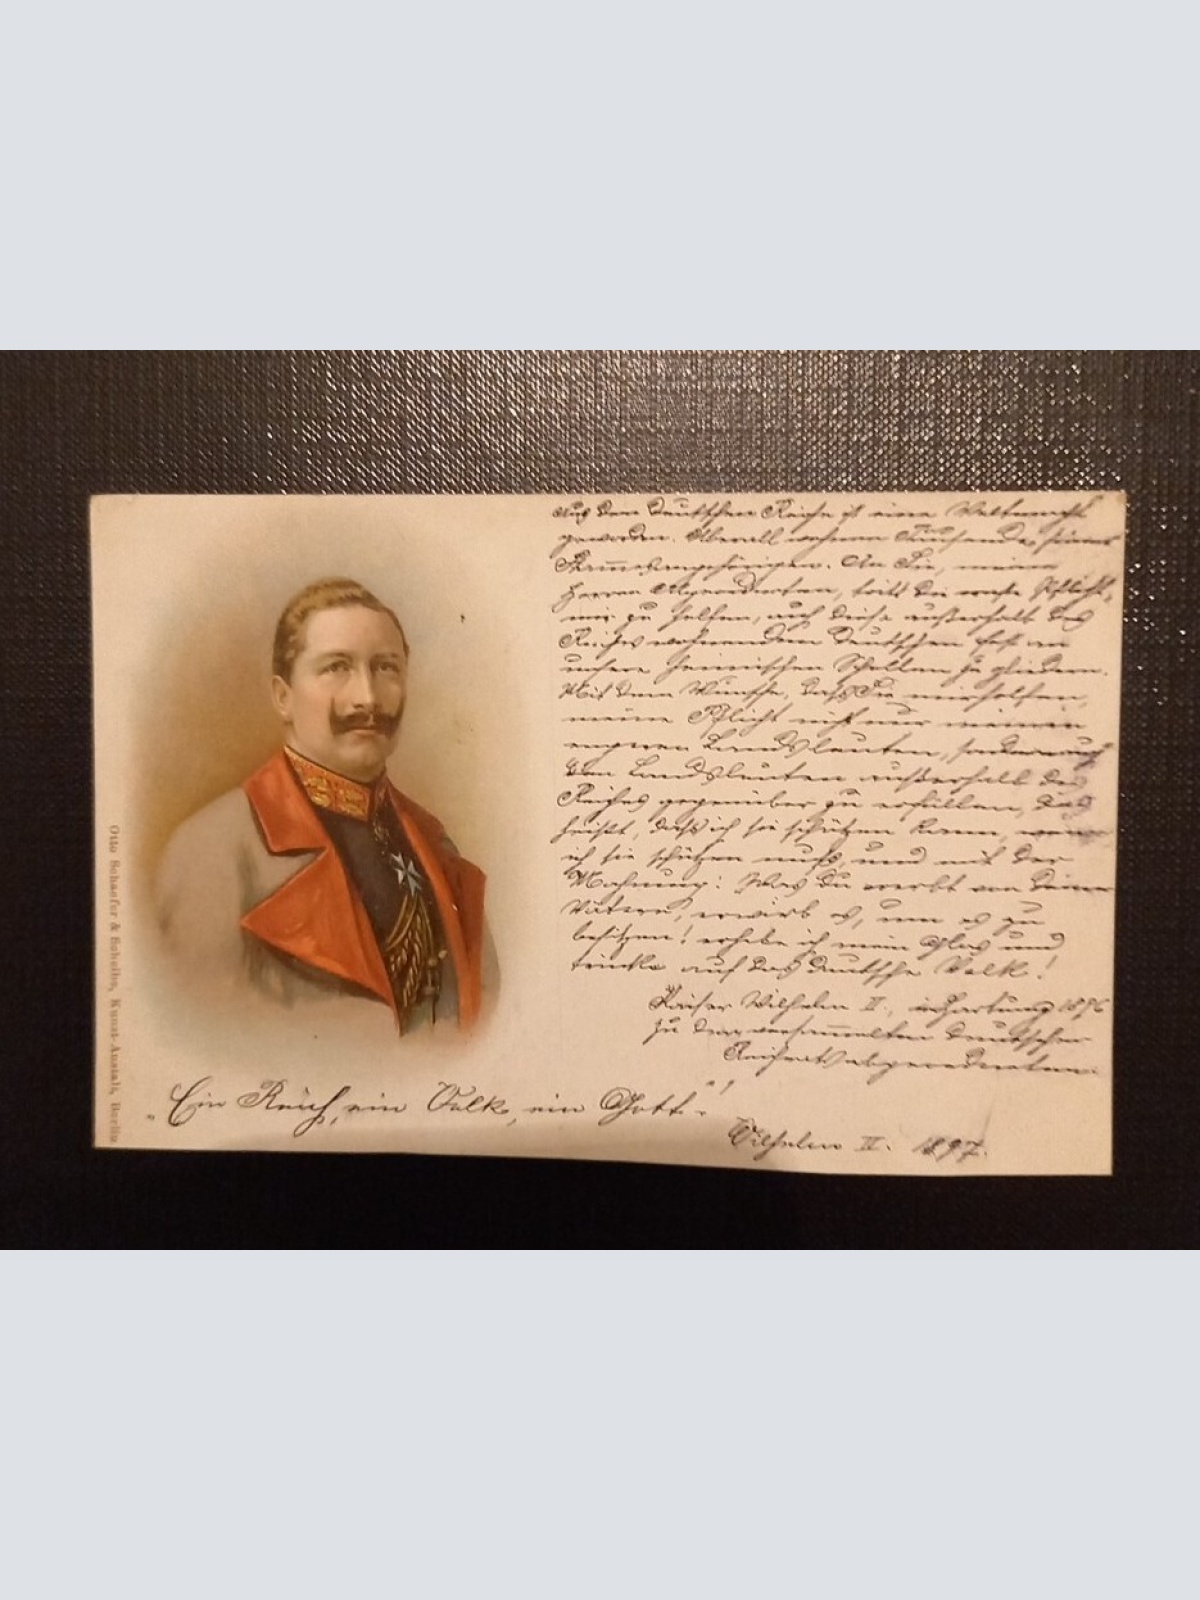 Aus dem Deutschen Reiche ist eine Weltmacht
geworden. Überall wohnen Tausende seiner
Stammesangehörigen. An Sie, meine
Herren Abgeordneten, tritt die ernste Pflicht,
mir zu helfen, auch diese außerhalb des
Reiches wohnenden Deutschen fest an
unsere heimischen Schollen zu gliedern.
Mit dem Wunsche, daß Sie mir helfen,
meine Pflicht nicht nur meinen
engeren Landsleuten, sondern auch
den Landsleuten außerhalb des
Reiches gegenüber zu erfüllen, das
heißt, daß ich sie schützen kann, wenn
ich sie schützen muß, und mit der
Mahnung: Was Du ererbt von Deinen
Vätern, erwirb es, um es zu
besitzen! erhebe ich mein Glas und
trinke auf das deutsche Volk!
Kaiser Wilhelm II., 1896
zu den versammelten deutschen
Reichstagsabgeordneten.
„Ein Reich, ein Volk, ein Gott.“!
Wilhelm II. 1897.
Otto Schaefer & Scheibe, Kunst-Anstalt, Berlin